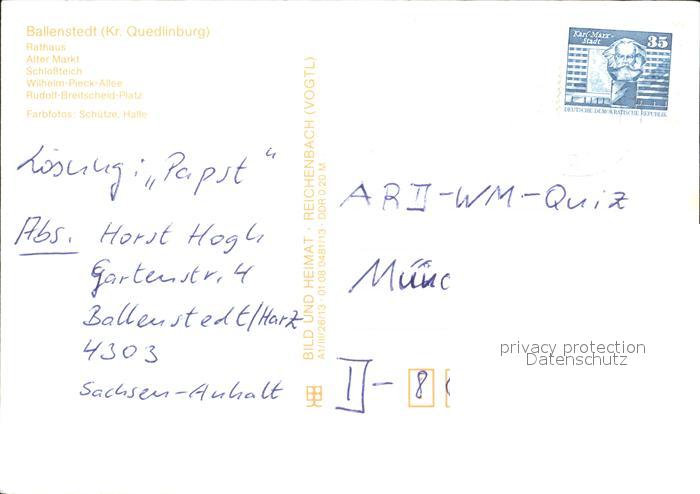 Ballenstedt (Kr. Quedlinburg)
Rathaus
Alter Markt
Schloßteich
Wilhelm-Pieck-Allee
Rudolf-Breitscheid-Platz
Farbfotos: Schütze, Halle
Karl-Marx-
Stadt
35
DEUTSCHE DEMOKRATISCHE REPUBLIK
Lösung: „Papst“
Abs. Horst Hogh
Gartenstr. 4
Ballenstedt/Harz
4303
Sachsen-Anhalt
BILD UND HEIMAT · REICHENBACH (VOGTL)
A1/III/26/13 · 01 08 0481/13 · DDR 0,20 M
ARD-WM-Quiz
Münc
privacy protection
Datenschutz
D-8